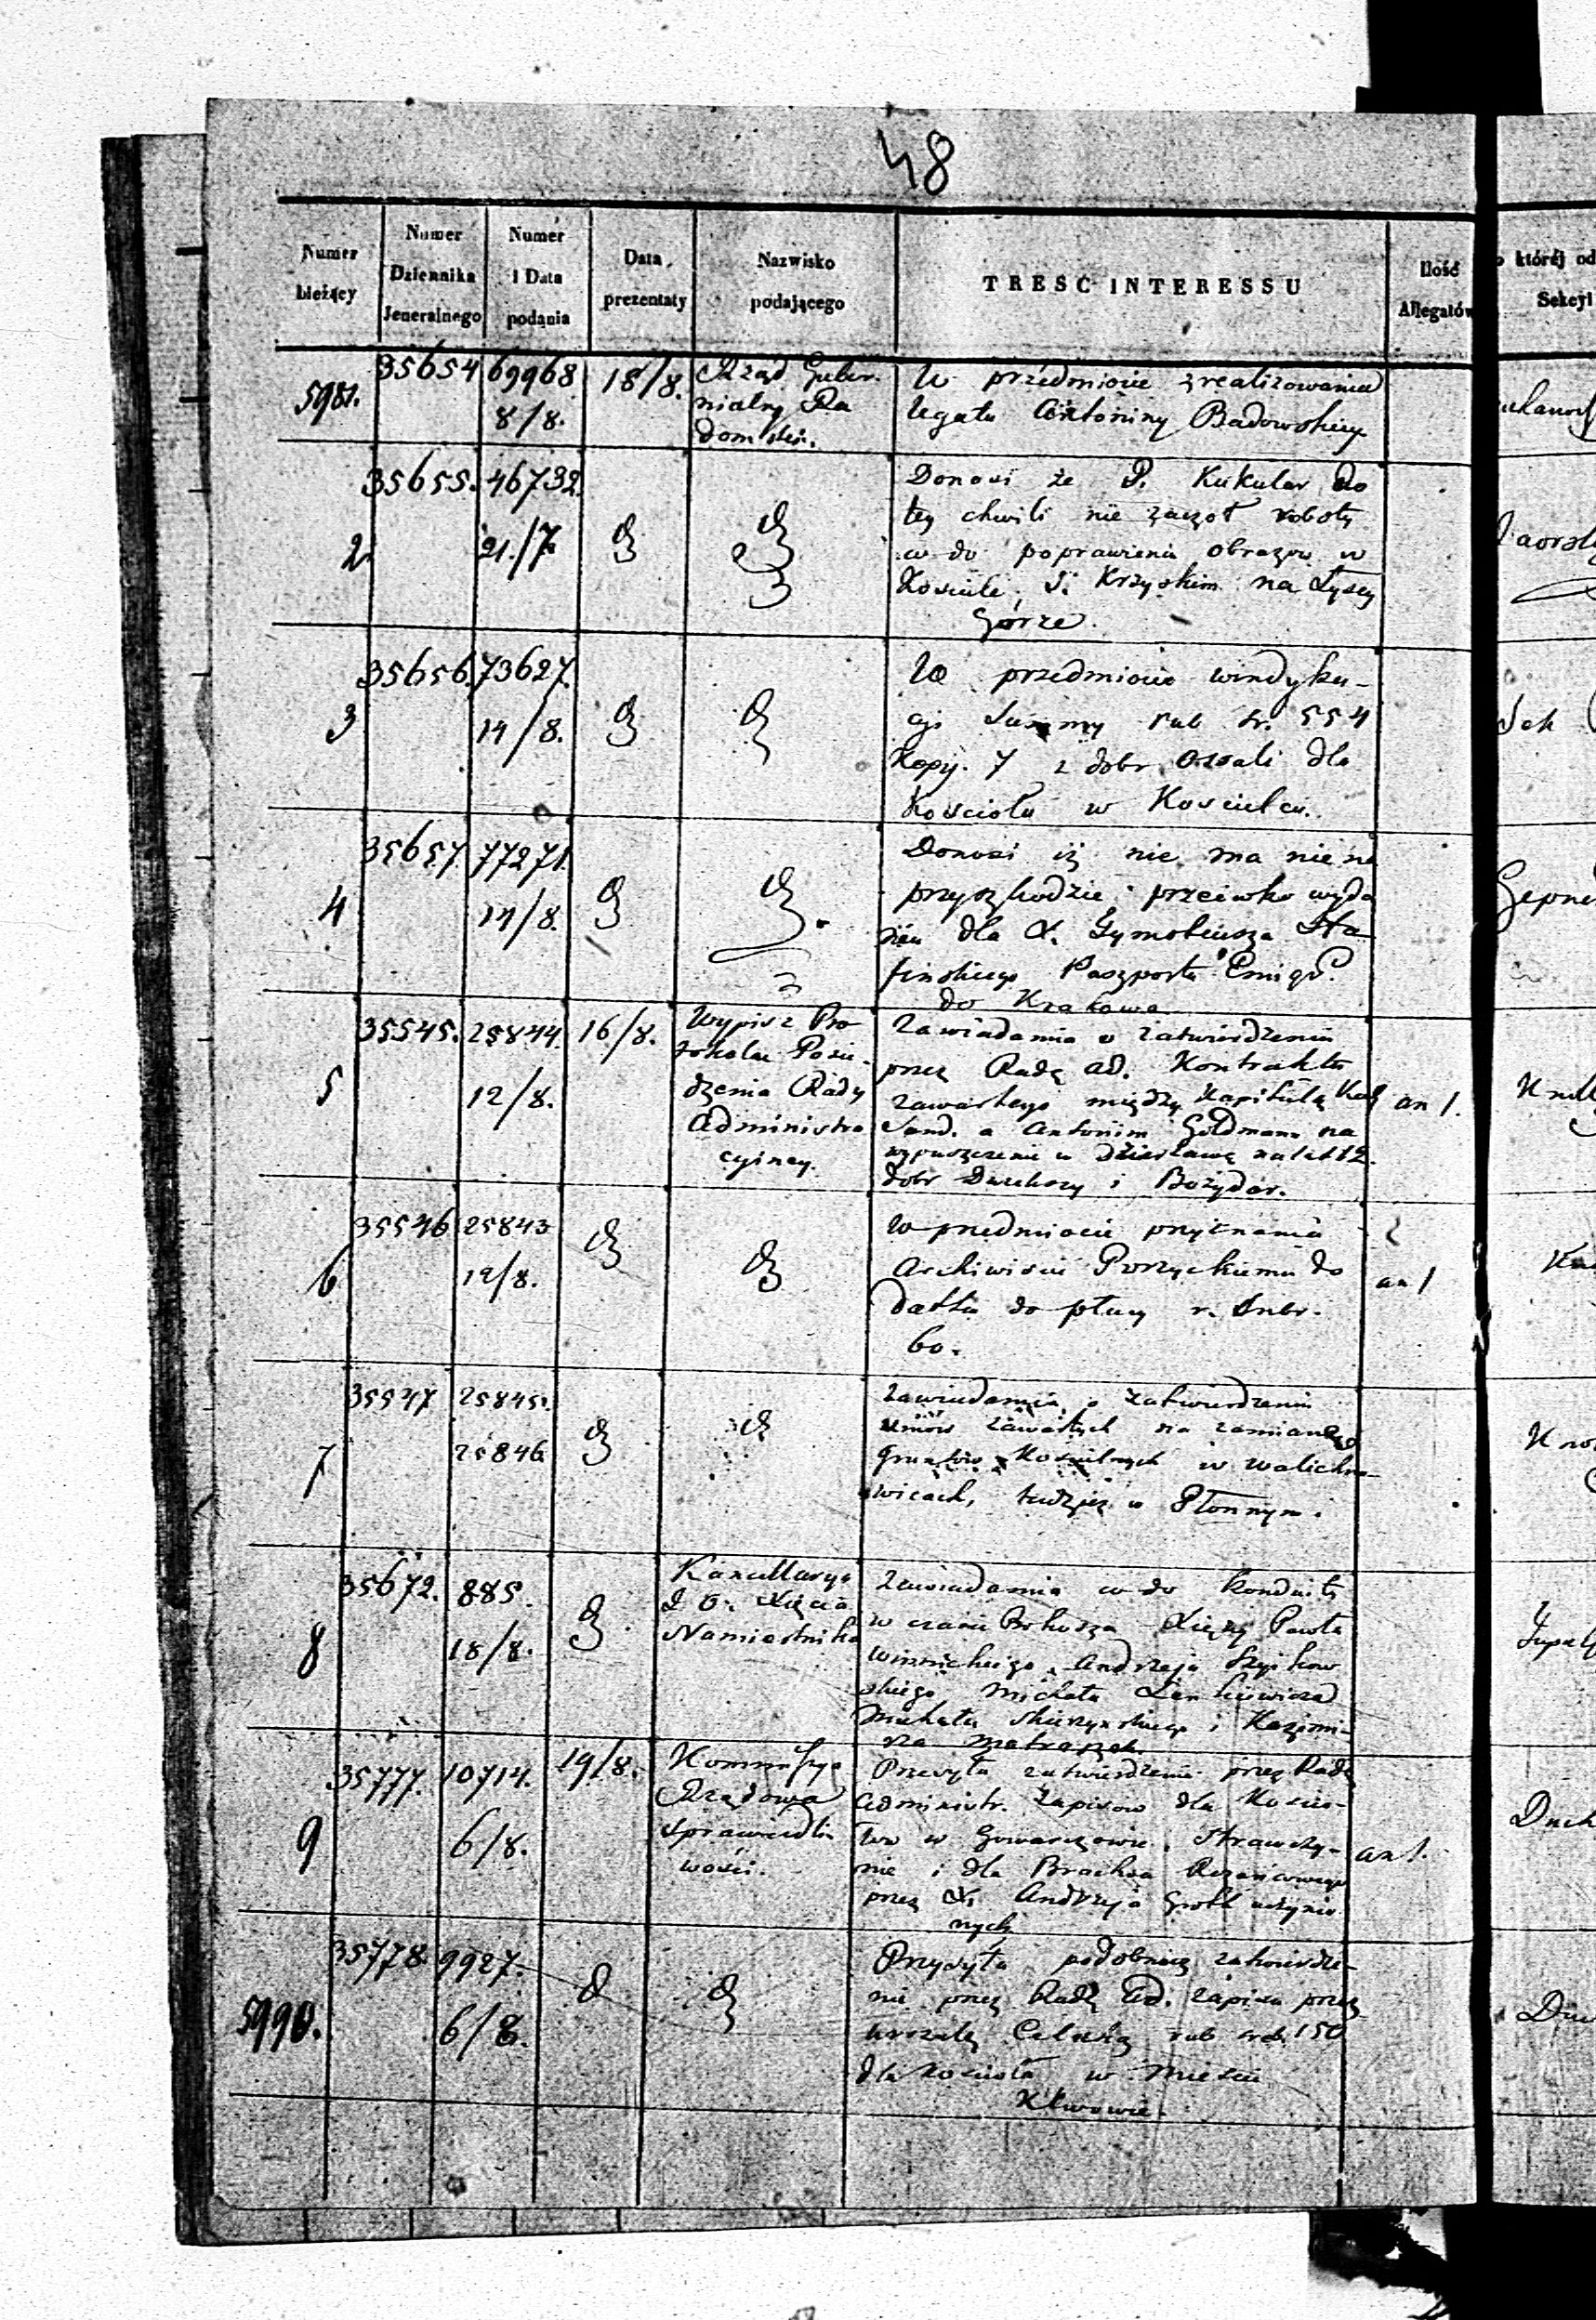 48
Numer bieżący
Numer Dziennika Jeneralnego
Numer i Data podania
Data prezentaty
Nazwisko podającego
TRESC INTERESSU
Ilość Allegatów
któréj od
Sekcyi
5981. 35654 69968 8/8. 18/8. Rząd Guber-
nialny Ra
domski.
W przedmiocie zrealizowania
legatu Antoniny Badowskiey
2. 35655. 46732. 21./7.
Donosi że P. Kukular do
tey chwili nie zaczoł roboty
w do poprawienia obrazow w
Kościele S. Krzyskim na Łysey
Górze.
3 35656. 73627. 14/8.
W przedmiocie windyka-
cji Summy rub sr. 554
kopy. 7 z dobr Ossali dla
Kościoła w Kościelcu.
4 35657. 77271. 14/8.
Donosi iż nie ma nic na
przyszkodzie przeciwko wyda
niu dla X. Tymoteusza
Paszportu Emigr.
do Krakowa
5 35545. 25844. 12/8. 16/8. Wypis z Pro
tokołu Posie-
dzenia Rady
Administra
cyiney.
Zawiadamia o zatwierdzeniu
przez Radę ad. Kontraktu
zawartego między Kapitułą Kat
Sand. a Antonim Goldmann na
wypuszczenie w dzierżawę na lat 12.
dobr Dwikozy i Bożydar.
an 1.
6 35546 25843 12/8.
W przedmiocie przyznania
Archiwiście Porzyckiemu do
datku do płacy r. srebr.
60.
an 1
7 35547 25845. 25846
Zawiadamia o zatwierdzeniu
umów zawartych na zamianę
Gruntów Kościelnych w Walichno-
wicach, tudzież w Płonnym.
8 35672. 885. 18/8. Kancellarya
J. O. Xięcia
Namiestnika
Zawiadamia w do konduity
w czasie Xięży Pawła
Winnickiego, Andrzeja
skiego Michała
Michała i Kazimi-
rza
9 35777. 10714. 6/8. 19/8. Kommissya
Rządowa
Sprawiedli
wości.
Przesyła zatwierdzenie przez Radę
Administr. Zapisów dla Kościo-
łów w Gowarczowie, Strawczy-
nie i dla Bractwa Różańcowego
przez X. Andrzeja uczynio
nych
an 1.
5990. 35778. 9927. 6/8.
Przysyła podobnież zatwierdze-
nie przez Radę Ad. zapisu przez
Urszulę rub sreb. 150
dla kościoła w Mieście
Klwowie.